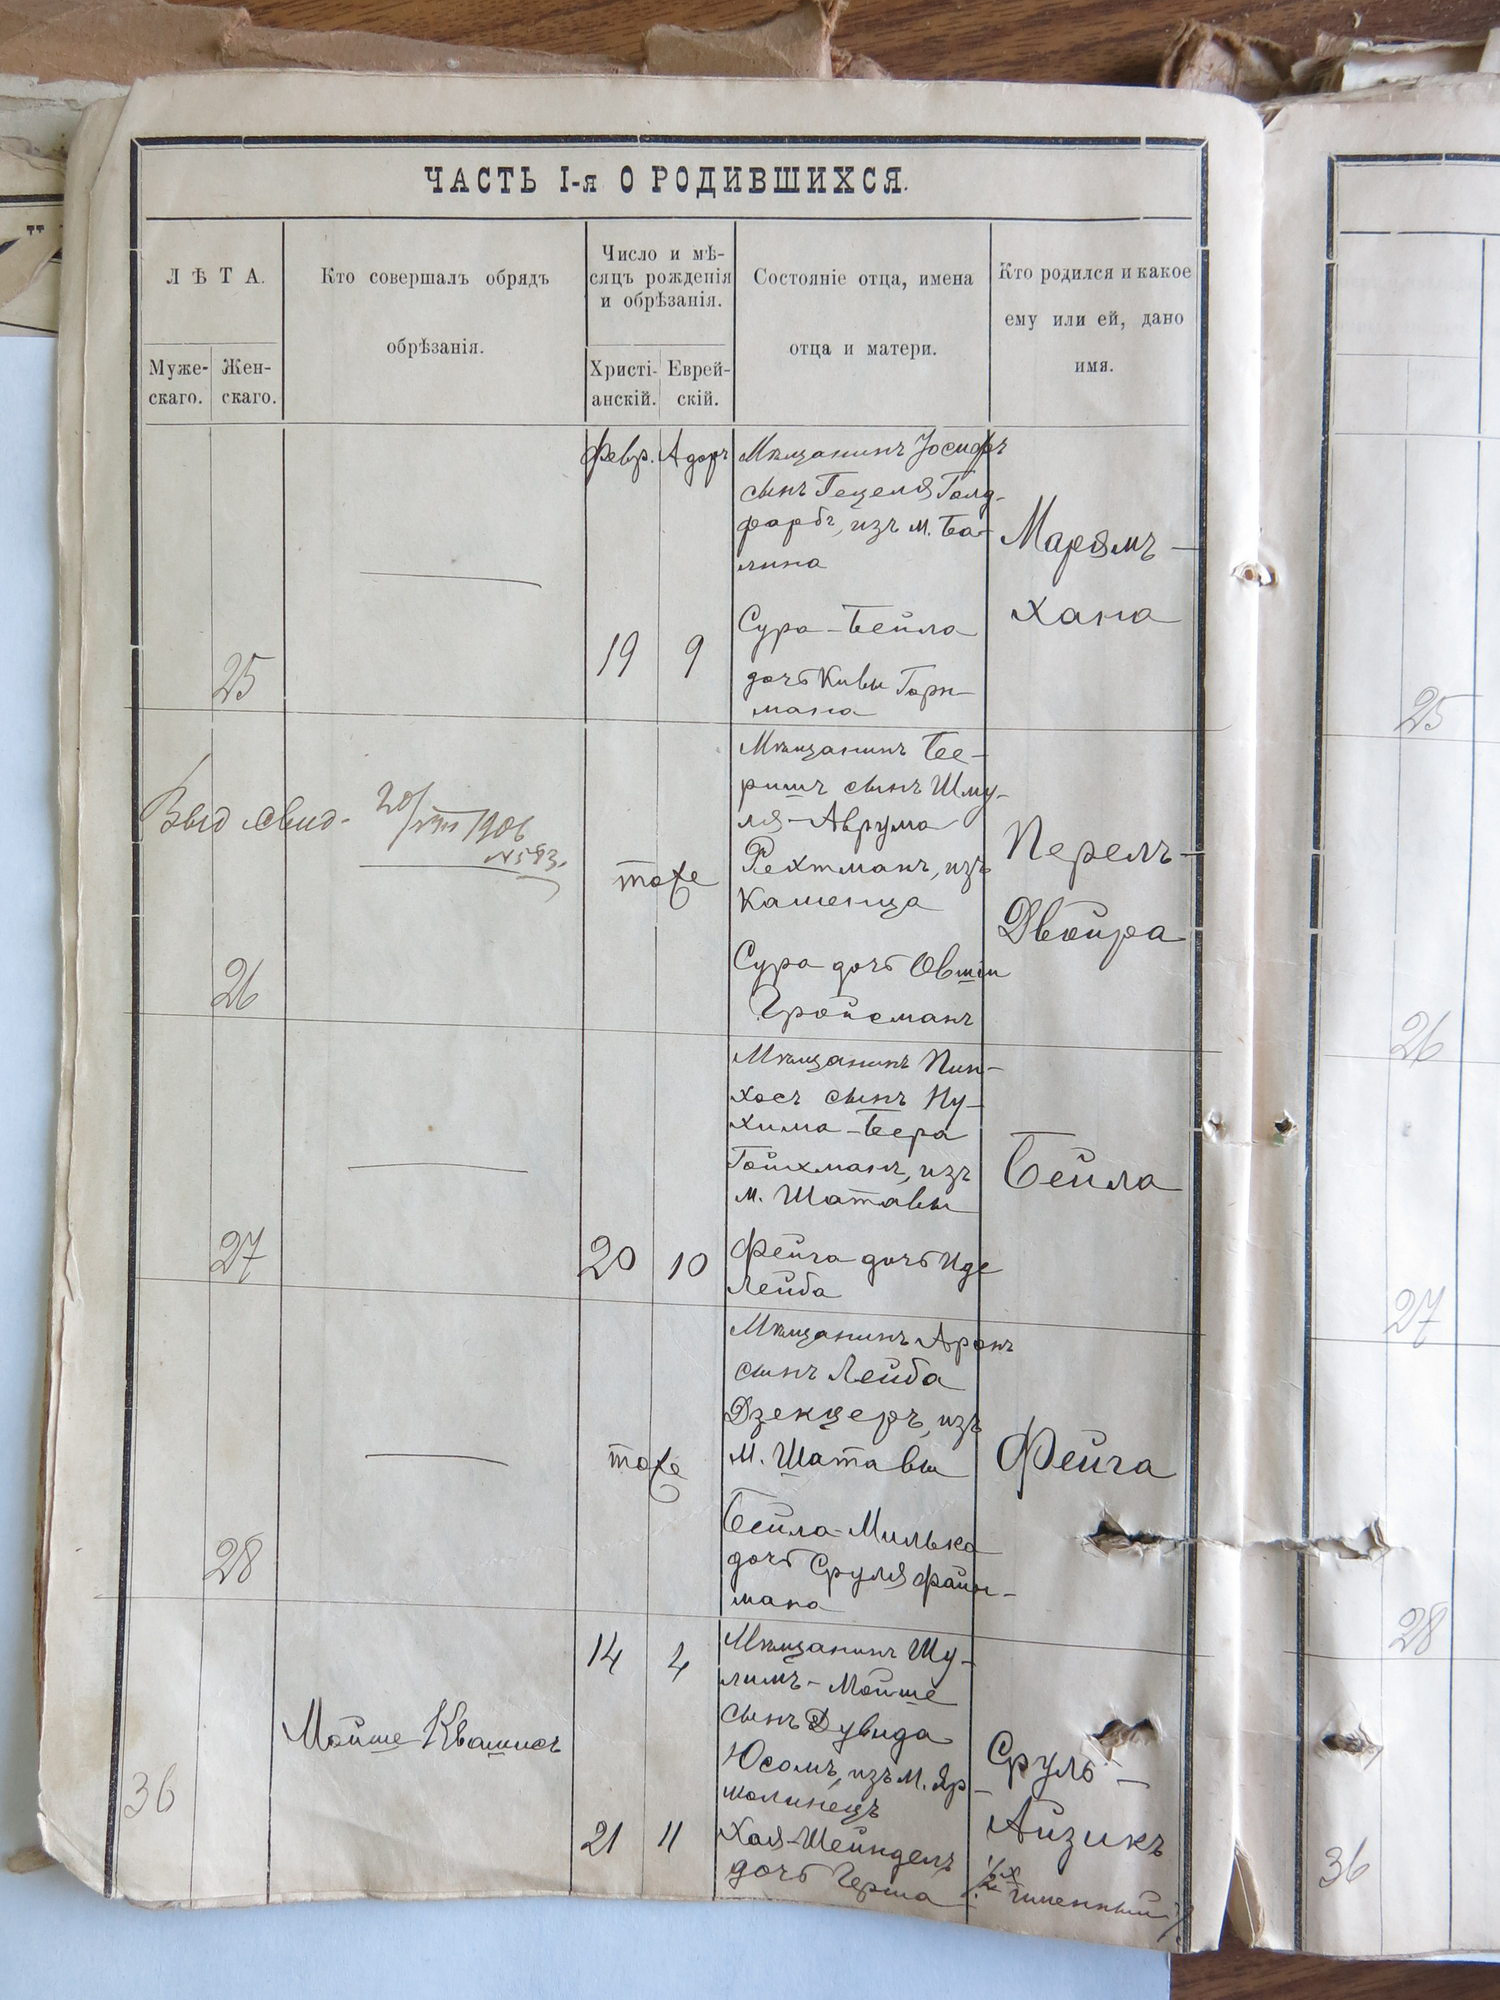 ЧАСТЬ I-я О РОДИВШИХСЯ.
ЛѢТА.
Муже-
скаго.
Жен-
скаго.
Кто совершалъ обрядъ
обрѣзанія.
Число и мѣ-
сяцъ рожденія
и обрѣзанія.
Христі-
анскій.
Еврей-
скій.
Состояніе отца, имена
отца и матери.
Кто родился и какое
ему или ей, дано
имя.
Февр. Адаръ
25
19 9
Мѣщанинъ Іосифъ
сынъ Гецеля Голд-
фарбъ, изъ м. Ба-
лина
Сура-Бейла
дочь Кивы Горн-
мана
Марьямъ-
хана
Выд свид. 20/VIII 1906
№ 583.
26
тоже
Мѣщанинъ Бе-
ришъ сынъ Шму-
ля-Аврума
Рехтманъ, изъ
Каменца
Сура дочь Овшіи
Гройсманъ
Перель-
Двойра
27
20 10
Мѣщанинъ Пин-
хосъ сынъ Ну-
хима-Бера
Гойхманъ, изъ
м. Шатавы
Фейга дочь Иде
Лейба
Бейла
28
тоже
Мѣщанинъ Аронъ
сынъ Лейба
Дзекцеръ, изъ
м. Шатавы
Бейла-Милька
дочь Сруля Файн-
мана
Фейга
36
Мойше Квашисъ
14 4
21 11
Мѣщанинъ Шу-
лимъ-Мойше
сынъ Дувида
Юсомъ, изъ м. Яр
молинецъ
Хая-Шейндель
дочь Герша
Сруль-
Айзикъ
/2х именный/
25
26
27
28
36